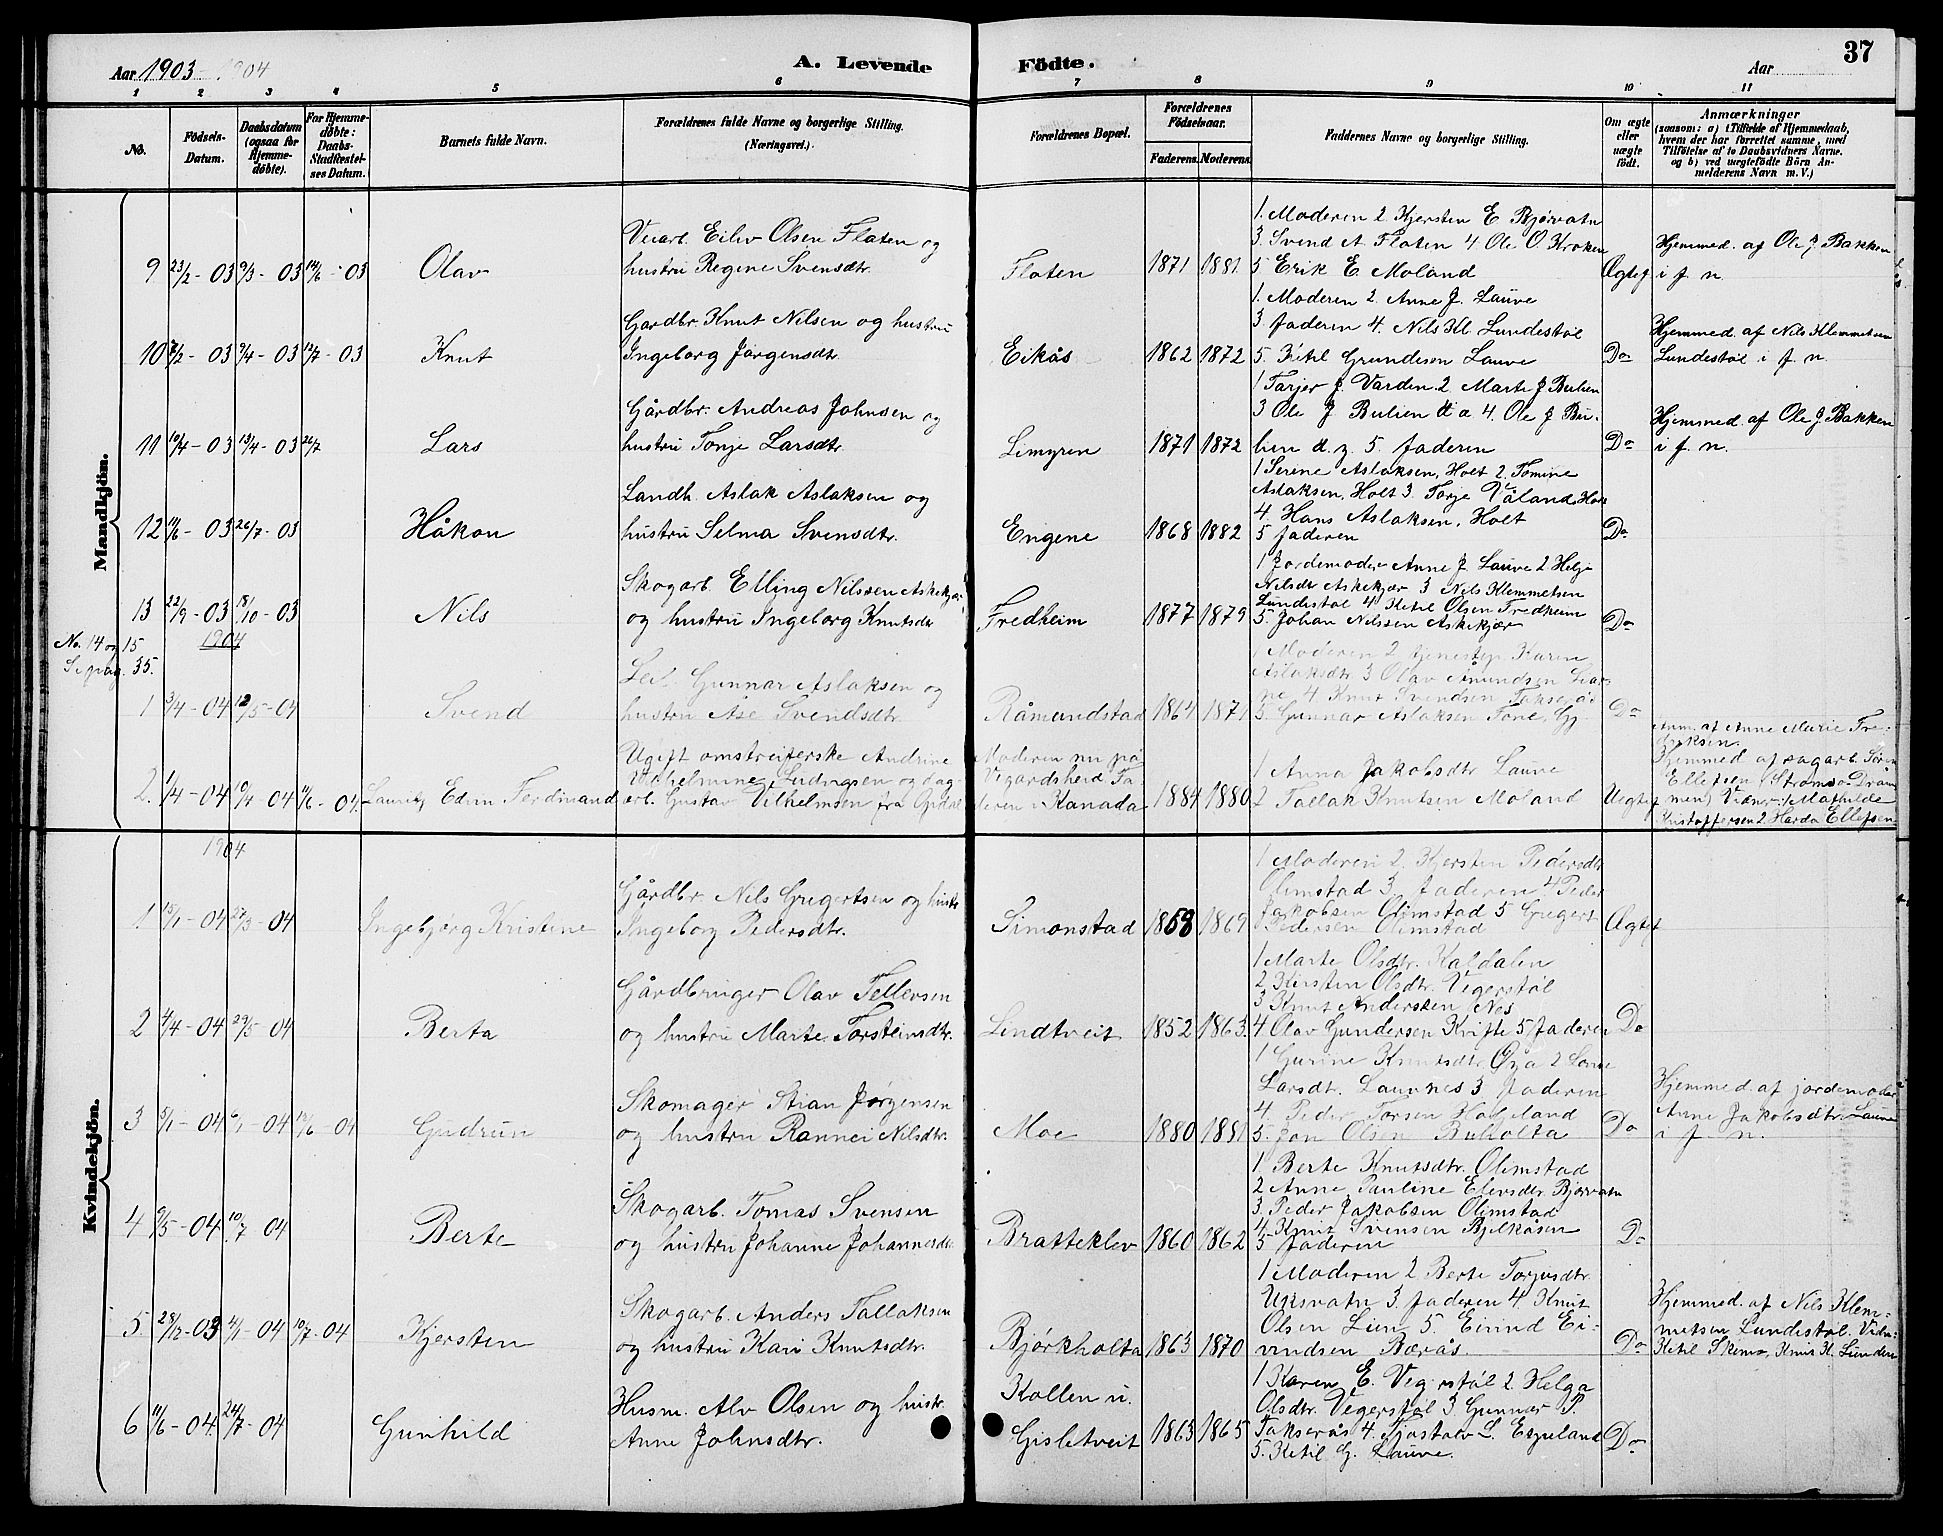 Aar 1903-1904
A. Levende
Födte.
Aar
37
1 2 3 4 5 6 7 8 9 10 11
No.
Födsels-
Datum.
Daabsdatum
(ogsaa for
Hjemme-
döbte).
For Hjemme-
döbte:
Daabs-
Stadfæstel-
ses Datum.
Barnets fulde Navn.
Forældrenes fulde Navne og borgerlige Stilling.
(Næringsvei.)
Forældrenes Bopæl.
Forældrenes
Födselsaar.
Faderens. Moderens.
Faddernes Navne og borgerlige Stilling.
Om ægte
eller
uægte
födt.
Anmærkninger
(saasom: a) i Tilfælde af Hjemmedaab,
hvem der har forrettet samme, med
Tilföielse af to Daabsvidners Navne.
og b) ved uægtefödte Börn An-
melderens Navn m. V.)
Mandkjön.
9 23/2-03 9/3-03 14/6-03
Olav
Veiarb. Eilev Olsen Flaten og
hustru Regine Svensdtr.
Flaten
1871 1881
1. Moderen 2 Kjersten E Bjørvatn
3. Svend A Flaten 4 Ole O Kroken
5 Erik E Moland
Ægtef
Hjemmed. af Ole J. Bakken
i f. n.
10 /2-03 9/4-03 12/7-03
Knut
Gardbr. Knut Nilsen og hustru
Ingeborg Jørgensdtr.
Eikås
1862 1872
1. Moderen 2. Anne J. Lauve
3. faderen 4. Nils Kl. Lundestøl
5. Ketil Grundesen Lauve
Do
Hjemmed. af Nils Klemmetsen
Lundestøl i f. n.
11 10/4-03 13/4-03 26/7
Lars
Gårdbr. Andreas Johnsen og
hustru Tonje Larsdtr.
Limyren
1871 1872
1 Tarjer J. Varden 2. Marte J Bulien
3 Ole J Bulien d æ 4. Ole J Bu-
lien d. y. 5. faderen
Do
Hjemmed. af Ole J Bakken
i f. n.
12 11/6-03 26/7-03
Håkon
Landh. Aslak Aslaksen og
hustru Selma Svensdtr.
Engene
1868 1882
1 Serine Aslaksen, Holt 2. Tomine
Aslaksen, Holt 3. Torje Våland, Holt
4. Hans Aslaksen, Holt
5 faderen
Do
13 22/9-03 18/10-03
Nils
Skogarb. Elling Nilssen Askekjær
og hustru Ingeborg Knutsdtr
Fredheim
1877 1879
1 Jordemoder Anne J. Lauve 2 Helje
Nilsdtr Askekjær 3 Nils Klemmetsen
Lundestøl 4 Ketil Olsen Fredheim
5. Johan Nilssen Askekjær
Do
No. 14 og 15
Se pag. 35.
1904
1 3/4-04 12/5-04
Svend
Gunnar Aslaksen og
hustru Åse Svendsdtr.
Råmundstad
1864 1871
1 Moderen 2 tjenestep. Karen
Aslaksdtr 3 Olav Åmundsen
4 Knut Svendsen
5. Gunnar Aslaksen
Do
2. 1/4-04 10/4 04 11/6-04
Lauritz Edvin Ferdinand
Ugift omstreiferske Andrine
Vilhelmine Ludvigsen og dag-
arb. Gustav Vilhelmsen fra
Moderen nu på
Vegårdsheid Fa-
deren i Kanada
1884 1880
1 Anna Jakobsdtr Lauve
2 Tallak Knutsen Moland
Uegtef
Anm. af Anne Marie Fre-
driksen.
Hjemmed af sagarb. Søren
Ellefsen (Strømsø Dram-
men) Vidner: 1 Mathilde
Kristoffersen 2. Harda Ellefsen
Kvindekjön.
1904
1 15/1-04 27/3-04
Ingebjørg Kristine
Gårdbr. Nils Gregertsen og hustr.
Ingeborg Pedersdtr.
Simonstad
1858 1869
1 Moderen 2. Kjersten Pedersdtr
Olimstad 3 faderen 4 Peder
Jakobsen Olimstad 5 Gregert
Pedersen Olimstad
Ægtef
2 4/4-04 29/5-04
Berta
Gårdbruger Olav Tellevsen
og hustru Marte Torsteinsdtr.
Lindtveit
1852 1863.
1 Marte Olsdtr. Kaldalen
2 Kirsten Olsdtr. Vegerstøl
3 Knut Anderssen Nes
4 Olav Gundersen Kvifte 5 faderen
Do
3 5/1-04 6/1-04 19/6-04
Gudrun
Skomager Stian Jørgensen
og hustru Rannei Nilsdtr.
Moe
1880 1881
1 Gurine Knutsdtr Øya 2
Larsdtr. Lauvnes 3 faderen
4. Peder Torsen Haugeland
5. Jon Olsen Buholta
Do
Hjemmed. af jordemoder
Anne Jakobsdtr. Lauve
i f. n.
4 9/5-04 10/7 04
Berte
Skogarb. Tomas Svensen
og hustru Johanne Johannesdtr
Bratteklev
1860 1862
1. Berte Knutsdtr. Olimstad
2 Anne Pauline Elevsdtr Bjørvatn
3. Peder Jakobsen Olimstad
4. Knut Svensen Bjelkåsen
5 faderen
Do
5 28/12-03 4/1-04 10/7-04
Kjersten
Skogarb. Anders Tallaksen
og hustru Kari Knutsdtr.
Bjørkholta
1863 1870
1 Moderen 2 Berte Torjusdtr.
Uvsvatn 3. faderen 4 Knut
Olsen Lien 5. Eivind Ei-
vindsen Bærås
Do
Hjemmed. af Nils Klem-
metsen Lundestøl. Vidn:
Ketil Skomo, Knut K. Lunden
6 11/6-04 24/7-04
Gunhild
Husm. Alv Olsen og hustr.
Anne Johnsdtr.
Kollen u.
Gisletveit
1863 1865
1 Karen E. Vegerstøl 2. Helga
Olsdtr. Vegerstøl 3 Gunnar P.
Takserås 4. Tjøstolv L. Espeland
5. Ketil G. Lauve.
Do